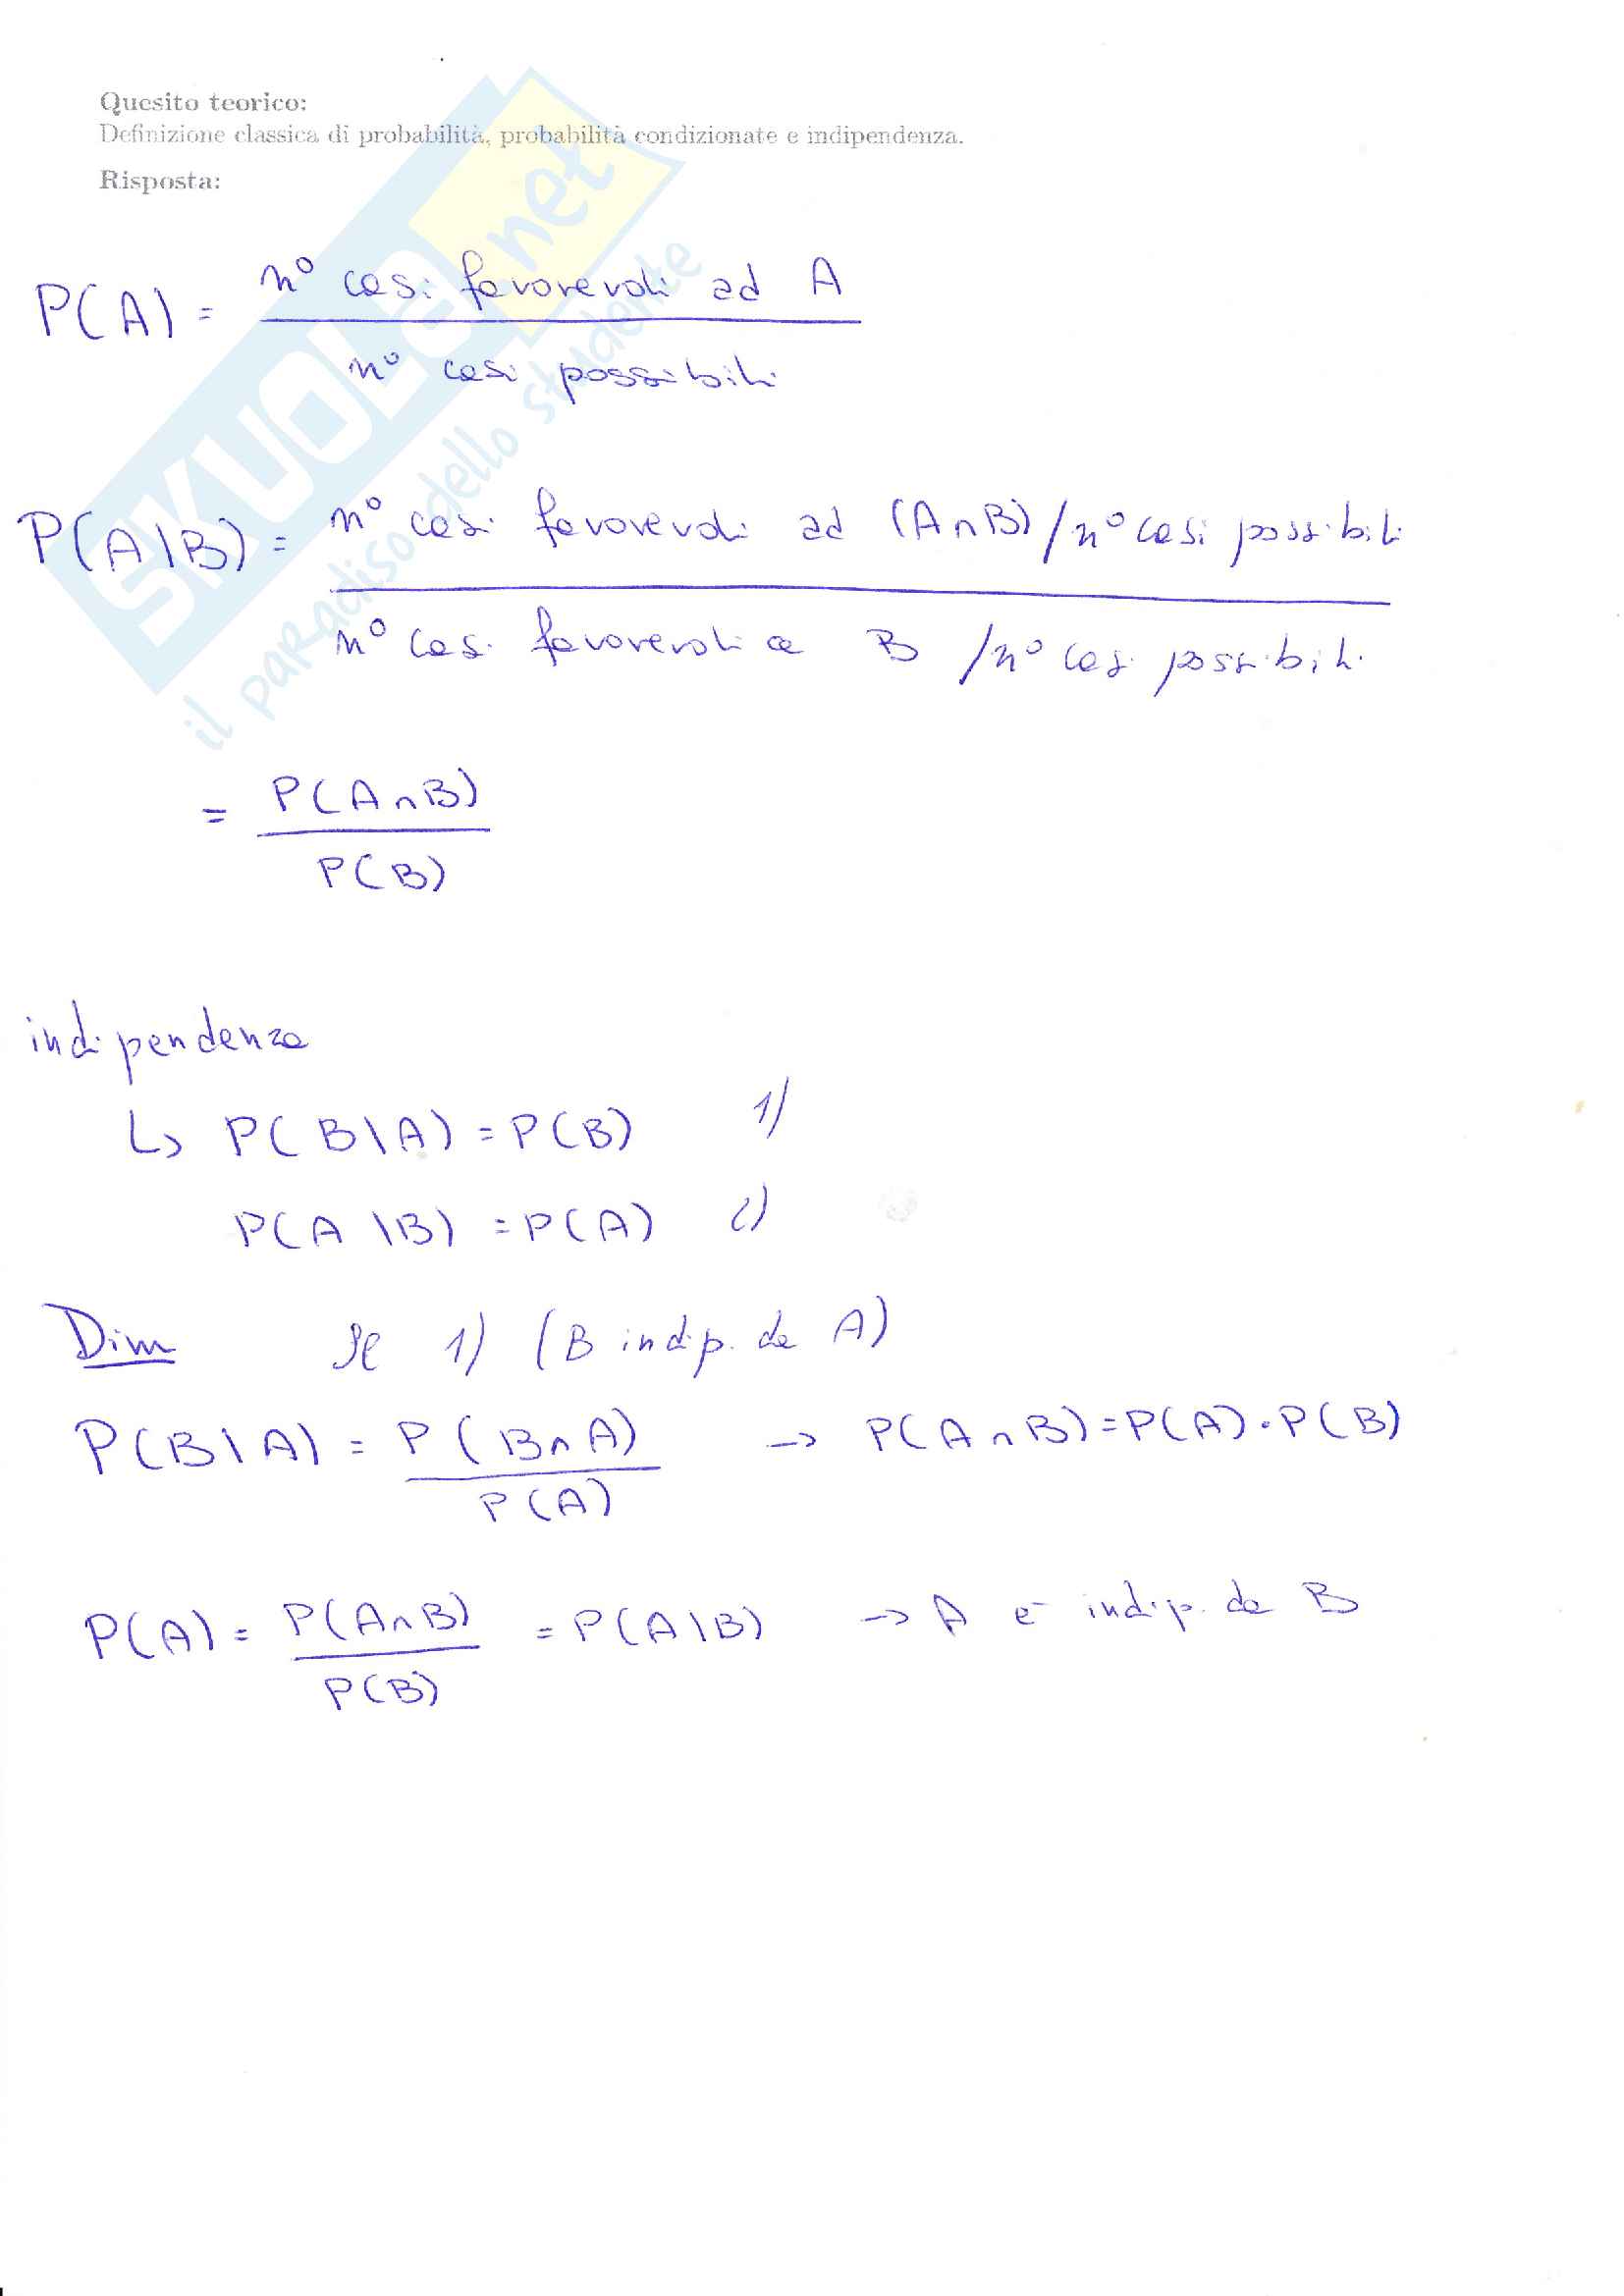 Quesito teorico:
Definizione classica di probabilità, probabilità condizionate e indipendenza.
Risposta:
SKUOLA.net
il paradiso dello studente
P(A) = n° casi favorevoli ad A
n° casi possibili
P(A\B) = n° casi favorevoli ad (A∩B) / n° casi possibili
n° casi favorevoli a B / n° casi possibili
= P(A∩B)
P(B)
indipendenza
↳ P(B\A) = P(B) 1)
P(A\B) = P(A) 2)
Dim Se 1) (B indip. da A)
P(B\A) = P(B∩A) → P(A∩B) = P(A)·P(B)
P(A)
P(A) = P(A∩B) = P(A\B) → A è indip. da B
P(B)